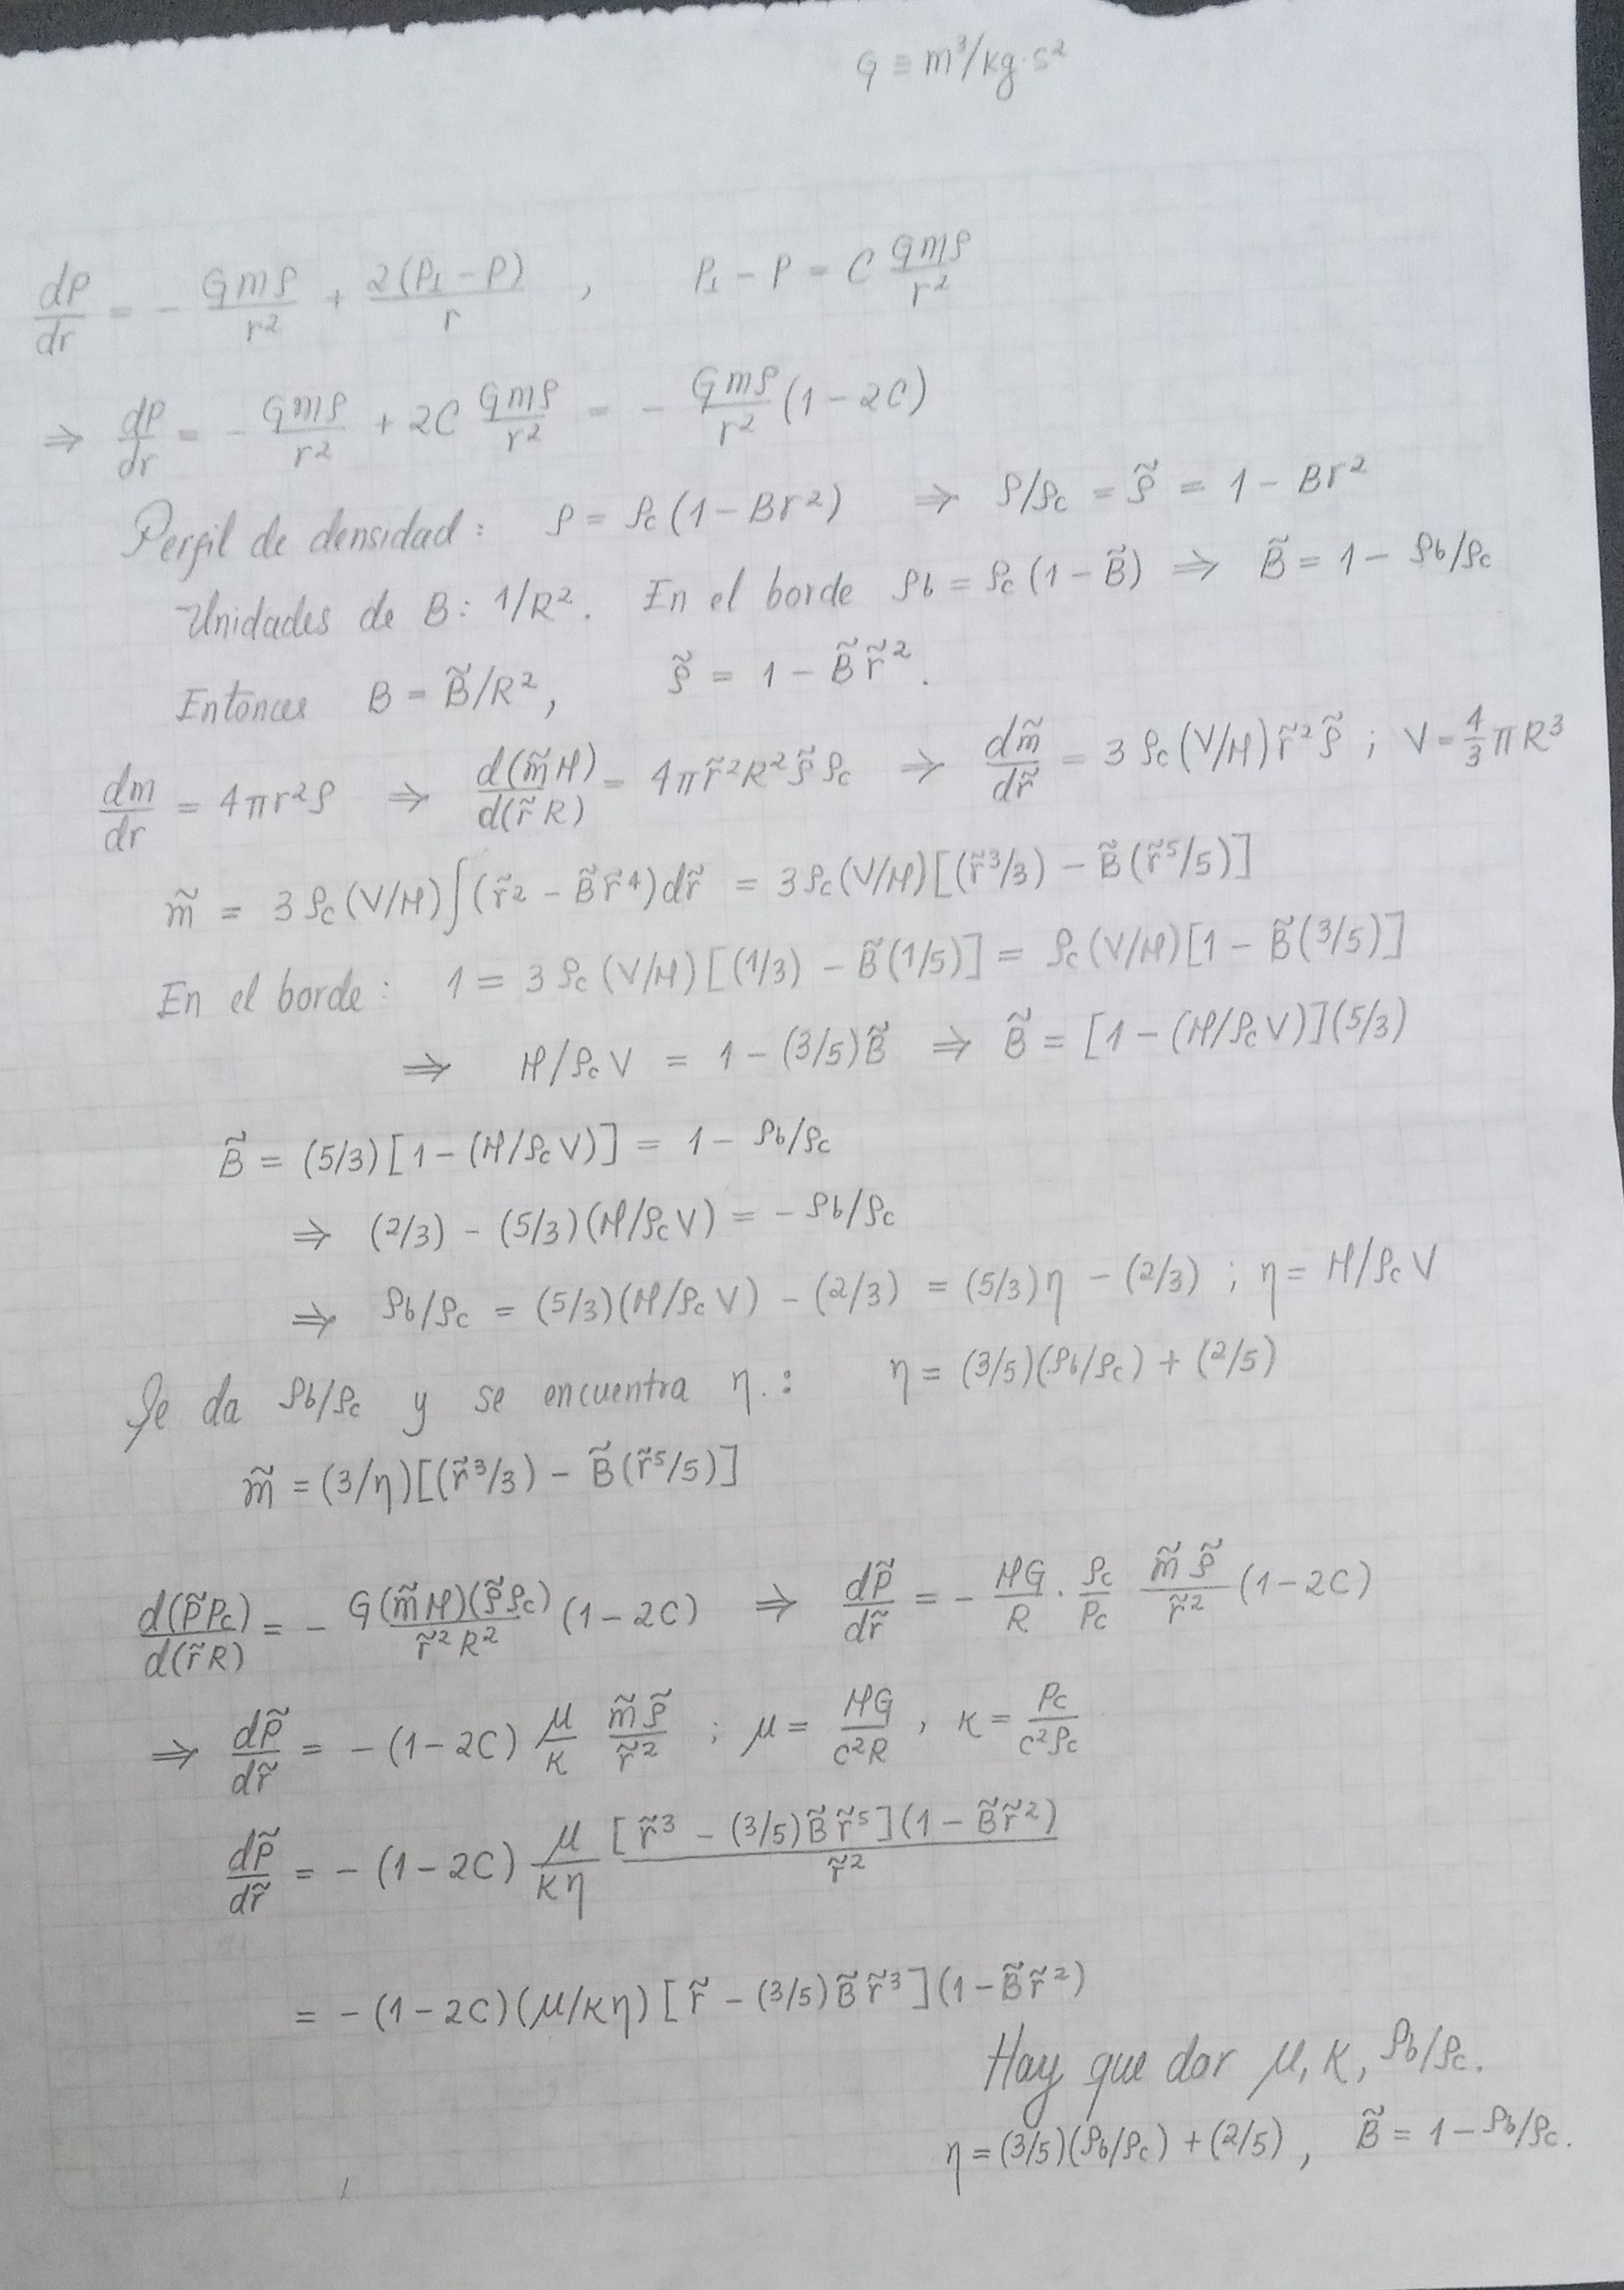 G ≡ m³/kg·s²
dP/dr = - Gmρ/r² + 2(P⊥ - P)/r , P⊥ - P = C Gmρ/r²
⇒ dP/dr = - Gmρ/r² + 2C Gmρ/r² = - Gmρ/r² (1 - 2C)
Perfil de densidad: ρ = ρc(1 - Br²) ⇒ ρ/ρc = ρ̃ = 1 - Br²
Unidades de B: 1/R². En el borde ρb = ρc(1 - B̃) ⇒ B̃ = 1 - ρb/ρc
Entonces B = B̃/R², ρ̃ = 1 - B̃ r̃².
dm/dr = 4πr²ρ ⇒ d(m̃M)/d(r̃R) = 4πr̃²R²ρ̃ρc ⇒ dm̃/dr̃ = 3ρc(V/M)r̃²ρ̃ ; V = 4/3 πR³
m̃ = 3ρc(V/M)∫(r̃² - B̃r̃⁴)dr̃ = 3ρc(V/M)[(r̃³/3) - B̃(r̃⁵/5)]
En el borde: 1 = 3ρc(V/M)[(1/3) - B̃(1/5)] = ρc(V/M)[1 - B̃(3/5)]
⇒ M/ρcV = 1 - (3/5)B̃ ⇒ B̃ = [1 - (M/ρcV)](5/3)
B̃ = (5/3)[1 - (M/ρcV)] = 1 - ρb/ρc
⇒ (2/3) - (5/3)(M/ρcV) = - ρb/ρc
⇒ ρb/ρc = (5/3)(M/ρcV) - (2/3) = (5/3)η - (2/3) ; η = M/ρcV
Se da ρb/ρc y se encuentra η.: η = (3/5)(ρb/ρc) + (2/5)
m̃ = (3/η)[(r̃³/3) - B̃(r̃⁵/5)]
d(P̃Pc)/d(r̃R) = - G(m̃M)(ρ̃ρc)/r̃²R² (1 - 2C) ⇒ dP̃/dr̃ = - MG/R · ρc/Pc m̃ρ̃/r̃² (1 - 2C)
⇒ dP̃/dr̃ = - (1 - 2C) μ/κ m̃ρ̃/r̃² ; μ = MG/c²R , κ = Pc/c²ρc
dP̃/dr̃ = - (1 - 2C) μ/κη [r̃³ - (3/5)B̃r̃⁵](1 - B̃r̃²)/r̃²
= - (1 - 2C)(μ/κη)[r̃ - (3/5)B̃r̃³](1 - B̃r̃²)
Hay que dar μ, κ, ρb/ρc.
η = (3/5)(ρb/ρc) + (2/5) , B̃ = 1 - ρb/ρc.